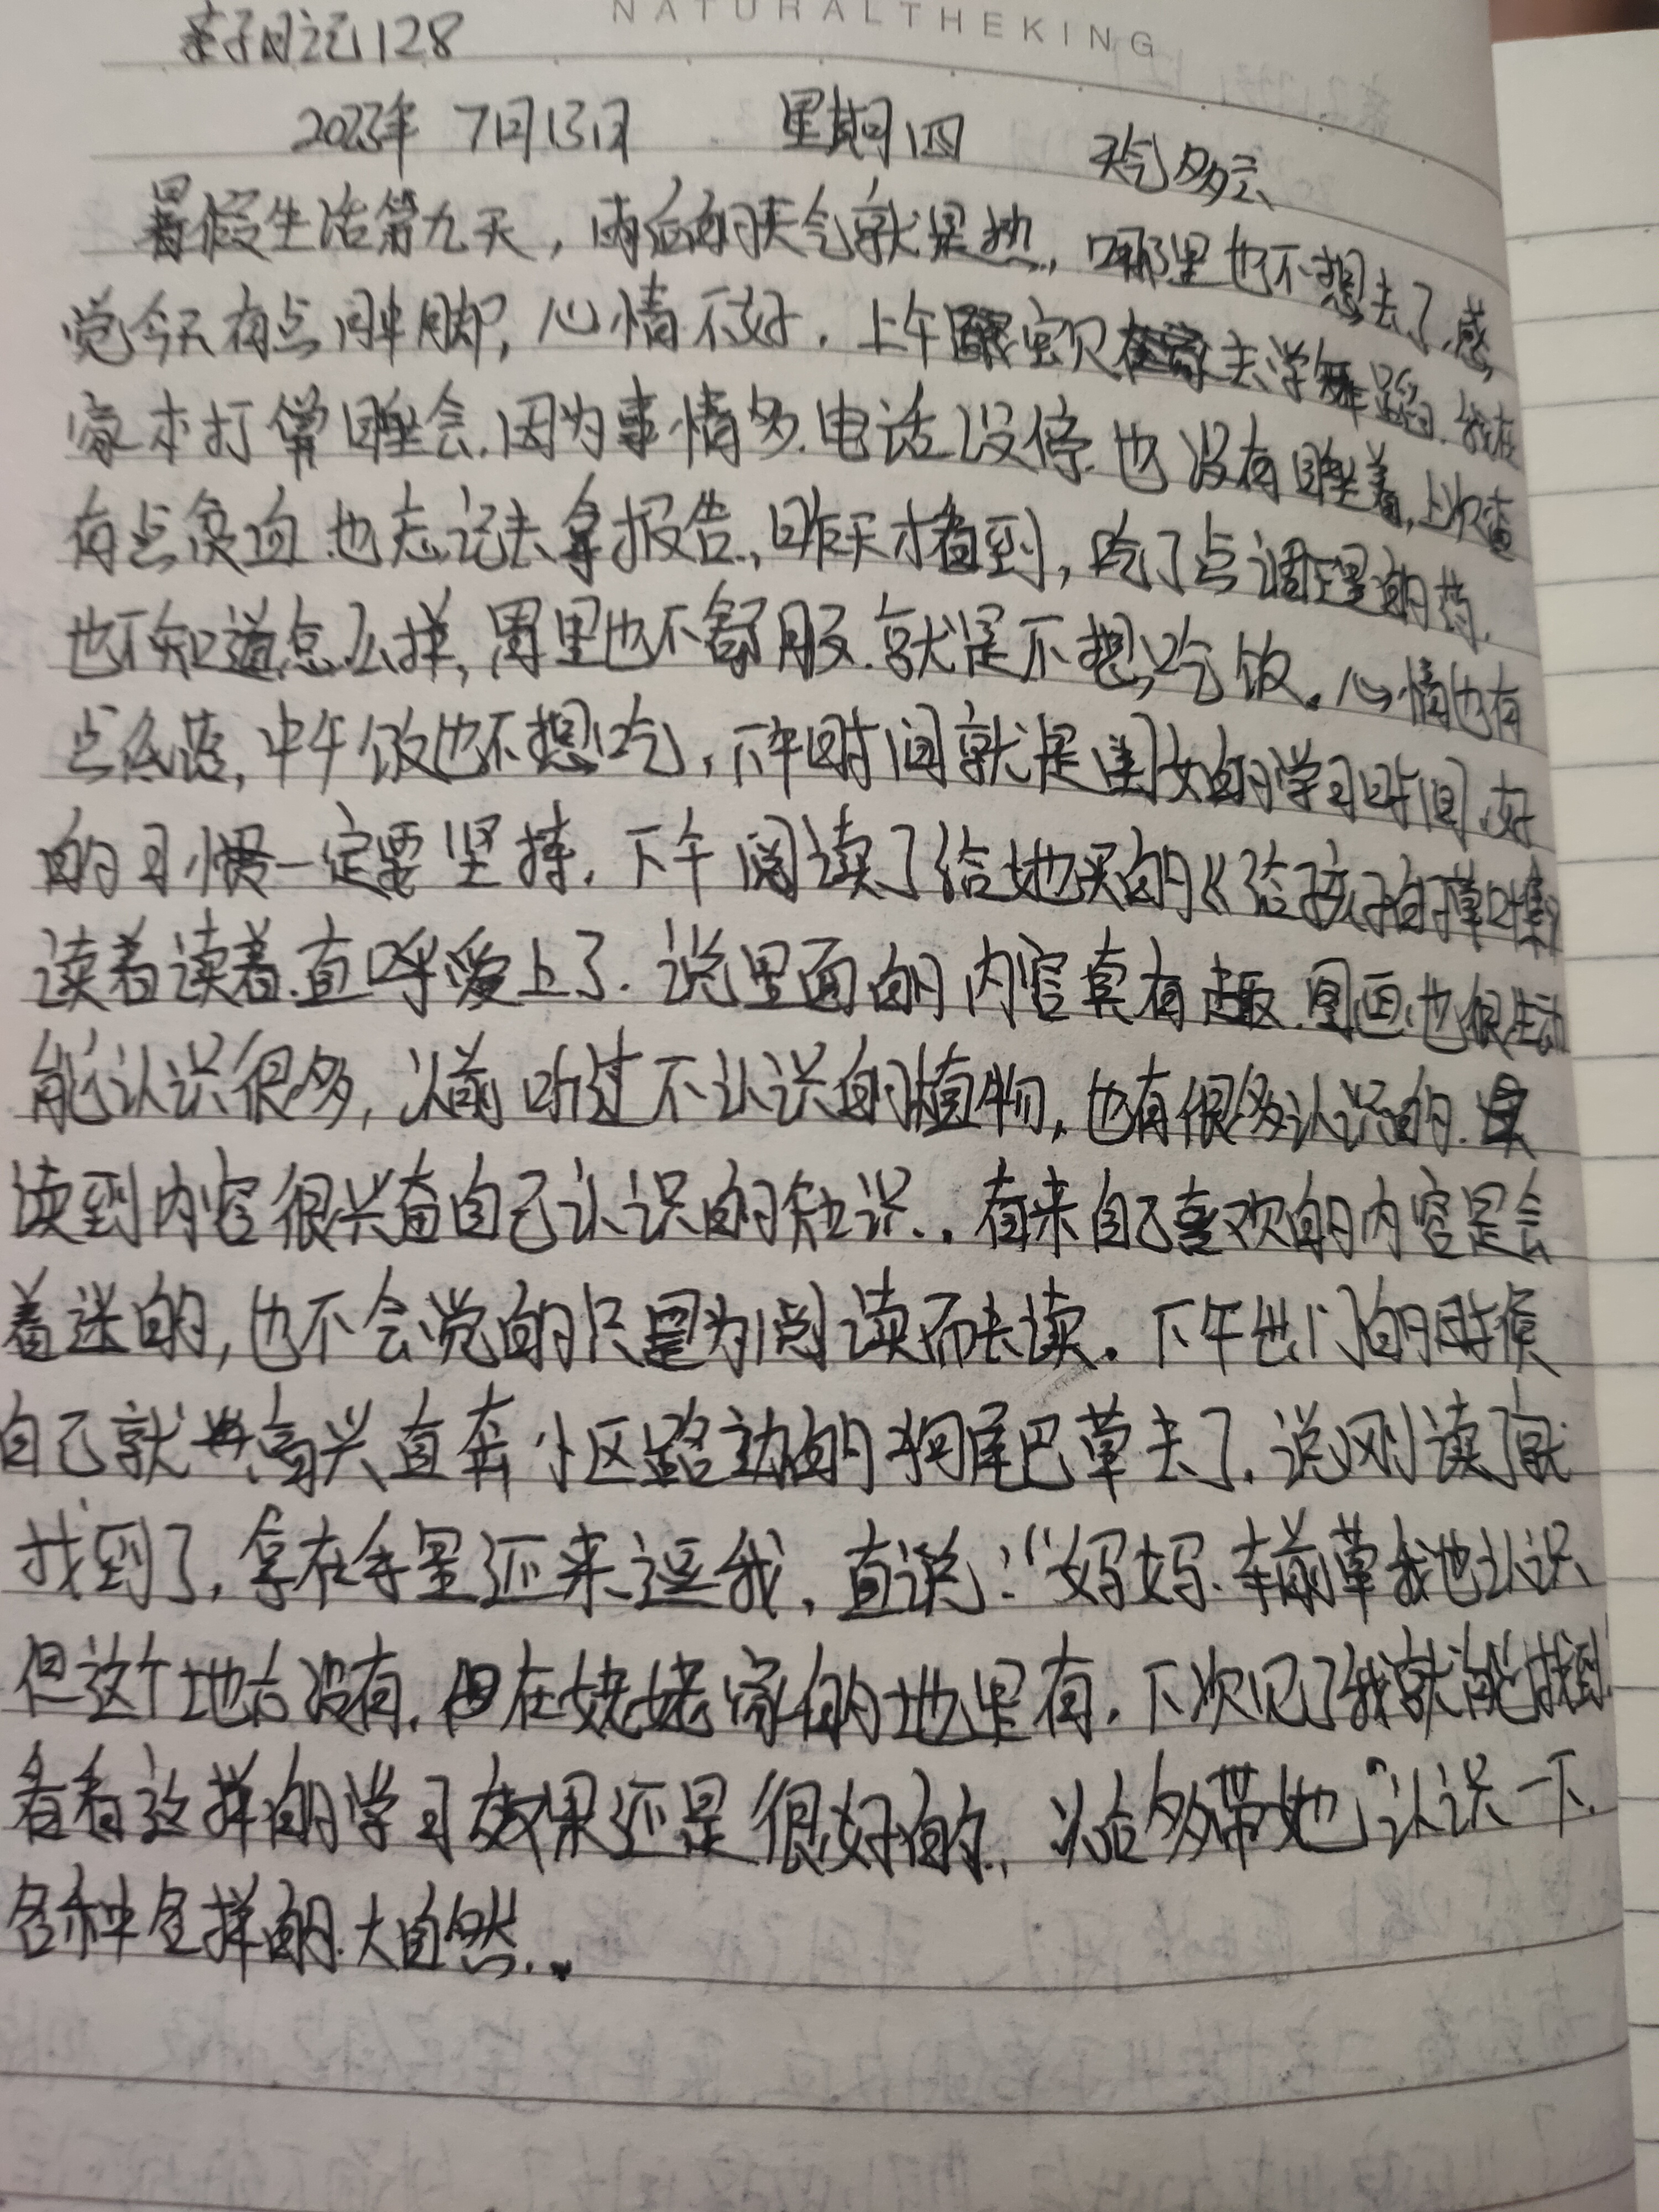 NATURALTHEKING
亲子日记128
2023年 7月13日 星期四 天气多云
暑假生活第九天，雨后的天气就是热，哪里也不想去了，感
觉今天有点胖脚，心情不好．上午宝贝去学舞蹈．我在
家本打算睡会．因为事情多．电话没停．也没有睡着，上次查
有点贫血．也忘记去拿报告，昨天才看到，吃了点调理的药，
也不知道怎么样，胃里也不舒服．就是不想吃饭。心情也有
点低落，中午饭也不想吃，下午时间就是闺女的学习时间，好
的习惯一定要坚持．下午阅读了给她买的《给孩子的草
读着读着．直呼爱上了．说里面的内容真有趣．图画也很生动
能认识很多，以前听过不认识的植物，也有很多认识的．
读到内容很兴奋自己认识的知识．．看来自己喜欢的内容是会
着迷的，也不会觉的只是为阅读而去读。下午出门的时候
自己就高兴直奔小区路边的狗尾巴草去了．说刚读了就
找到了，拿在手里还来逗我，直说：“妈妈．车前草我也认识
但这个地方没有，但在姥姥家的地里有．下次见了我就能找到．
看看这样的学习效果还是很好的，以后多带她”认识一下．
各种各样的．大自然．．